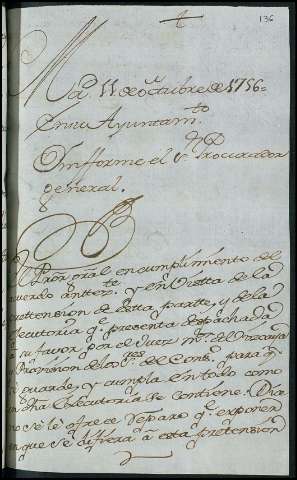 136
Md. 11 de octubre de 1756=
En su Ayuntam.to
Ynfforme el s.r Procurador
general.
El Pror. gral en cumplimiento del
acuerdo antte.te y en Vistta de la
prettension de estta partte, y de la
Executoria q.e presenta despachada
a su favor, por el Juez
para q.e
se guarde, y cumpla en todo como
en dha Executoria se contiene. Dice
no se le ofrece reparo q.e exponer
en que se difiera a estta prettension